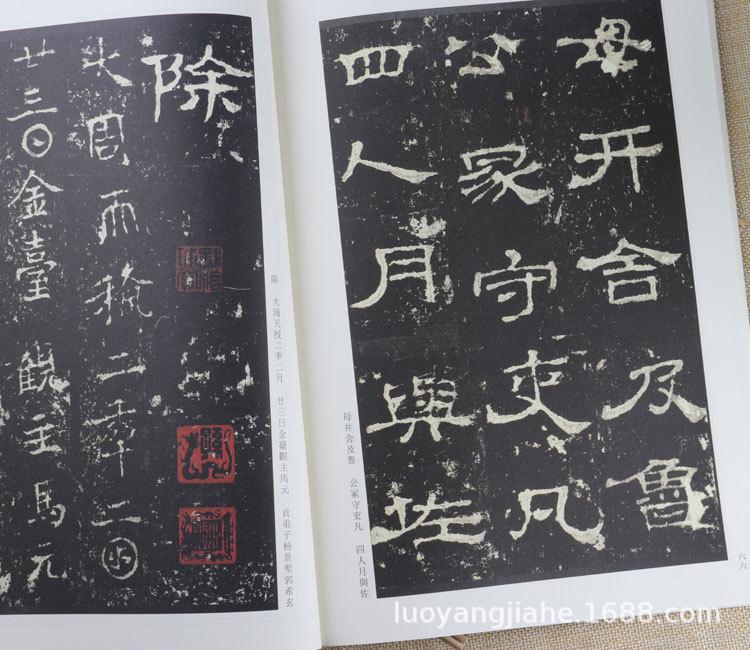 母开舍及魯
公冢守吏凡
四人月與佐
母井舍及魯　公冢守吏凡　四人月與佐
六六
除
大周天授二年二月
廿三日金臺觀主馬元
除　大周天授二季二月　廿三日金臺觀主馬元　貞弟子杨景聖郭希玄
luoyangjiahe.1688.com